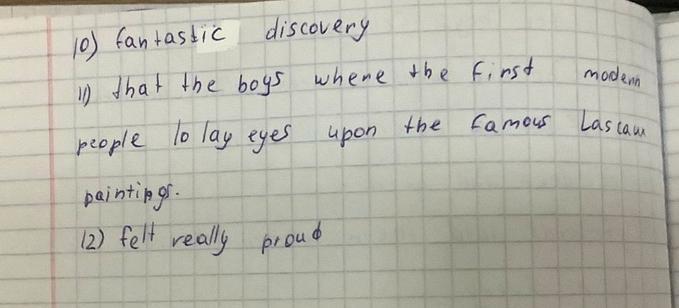 10) fantastic discovery
11) that the boys where the first modern
people to lay eyes upon the famous Lascaux
paintings.
12) felt really proud